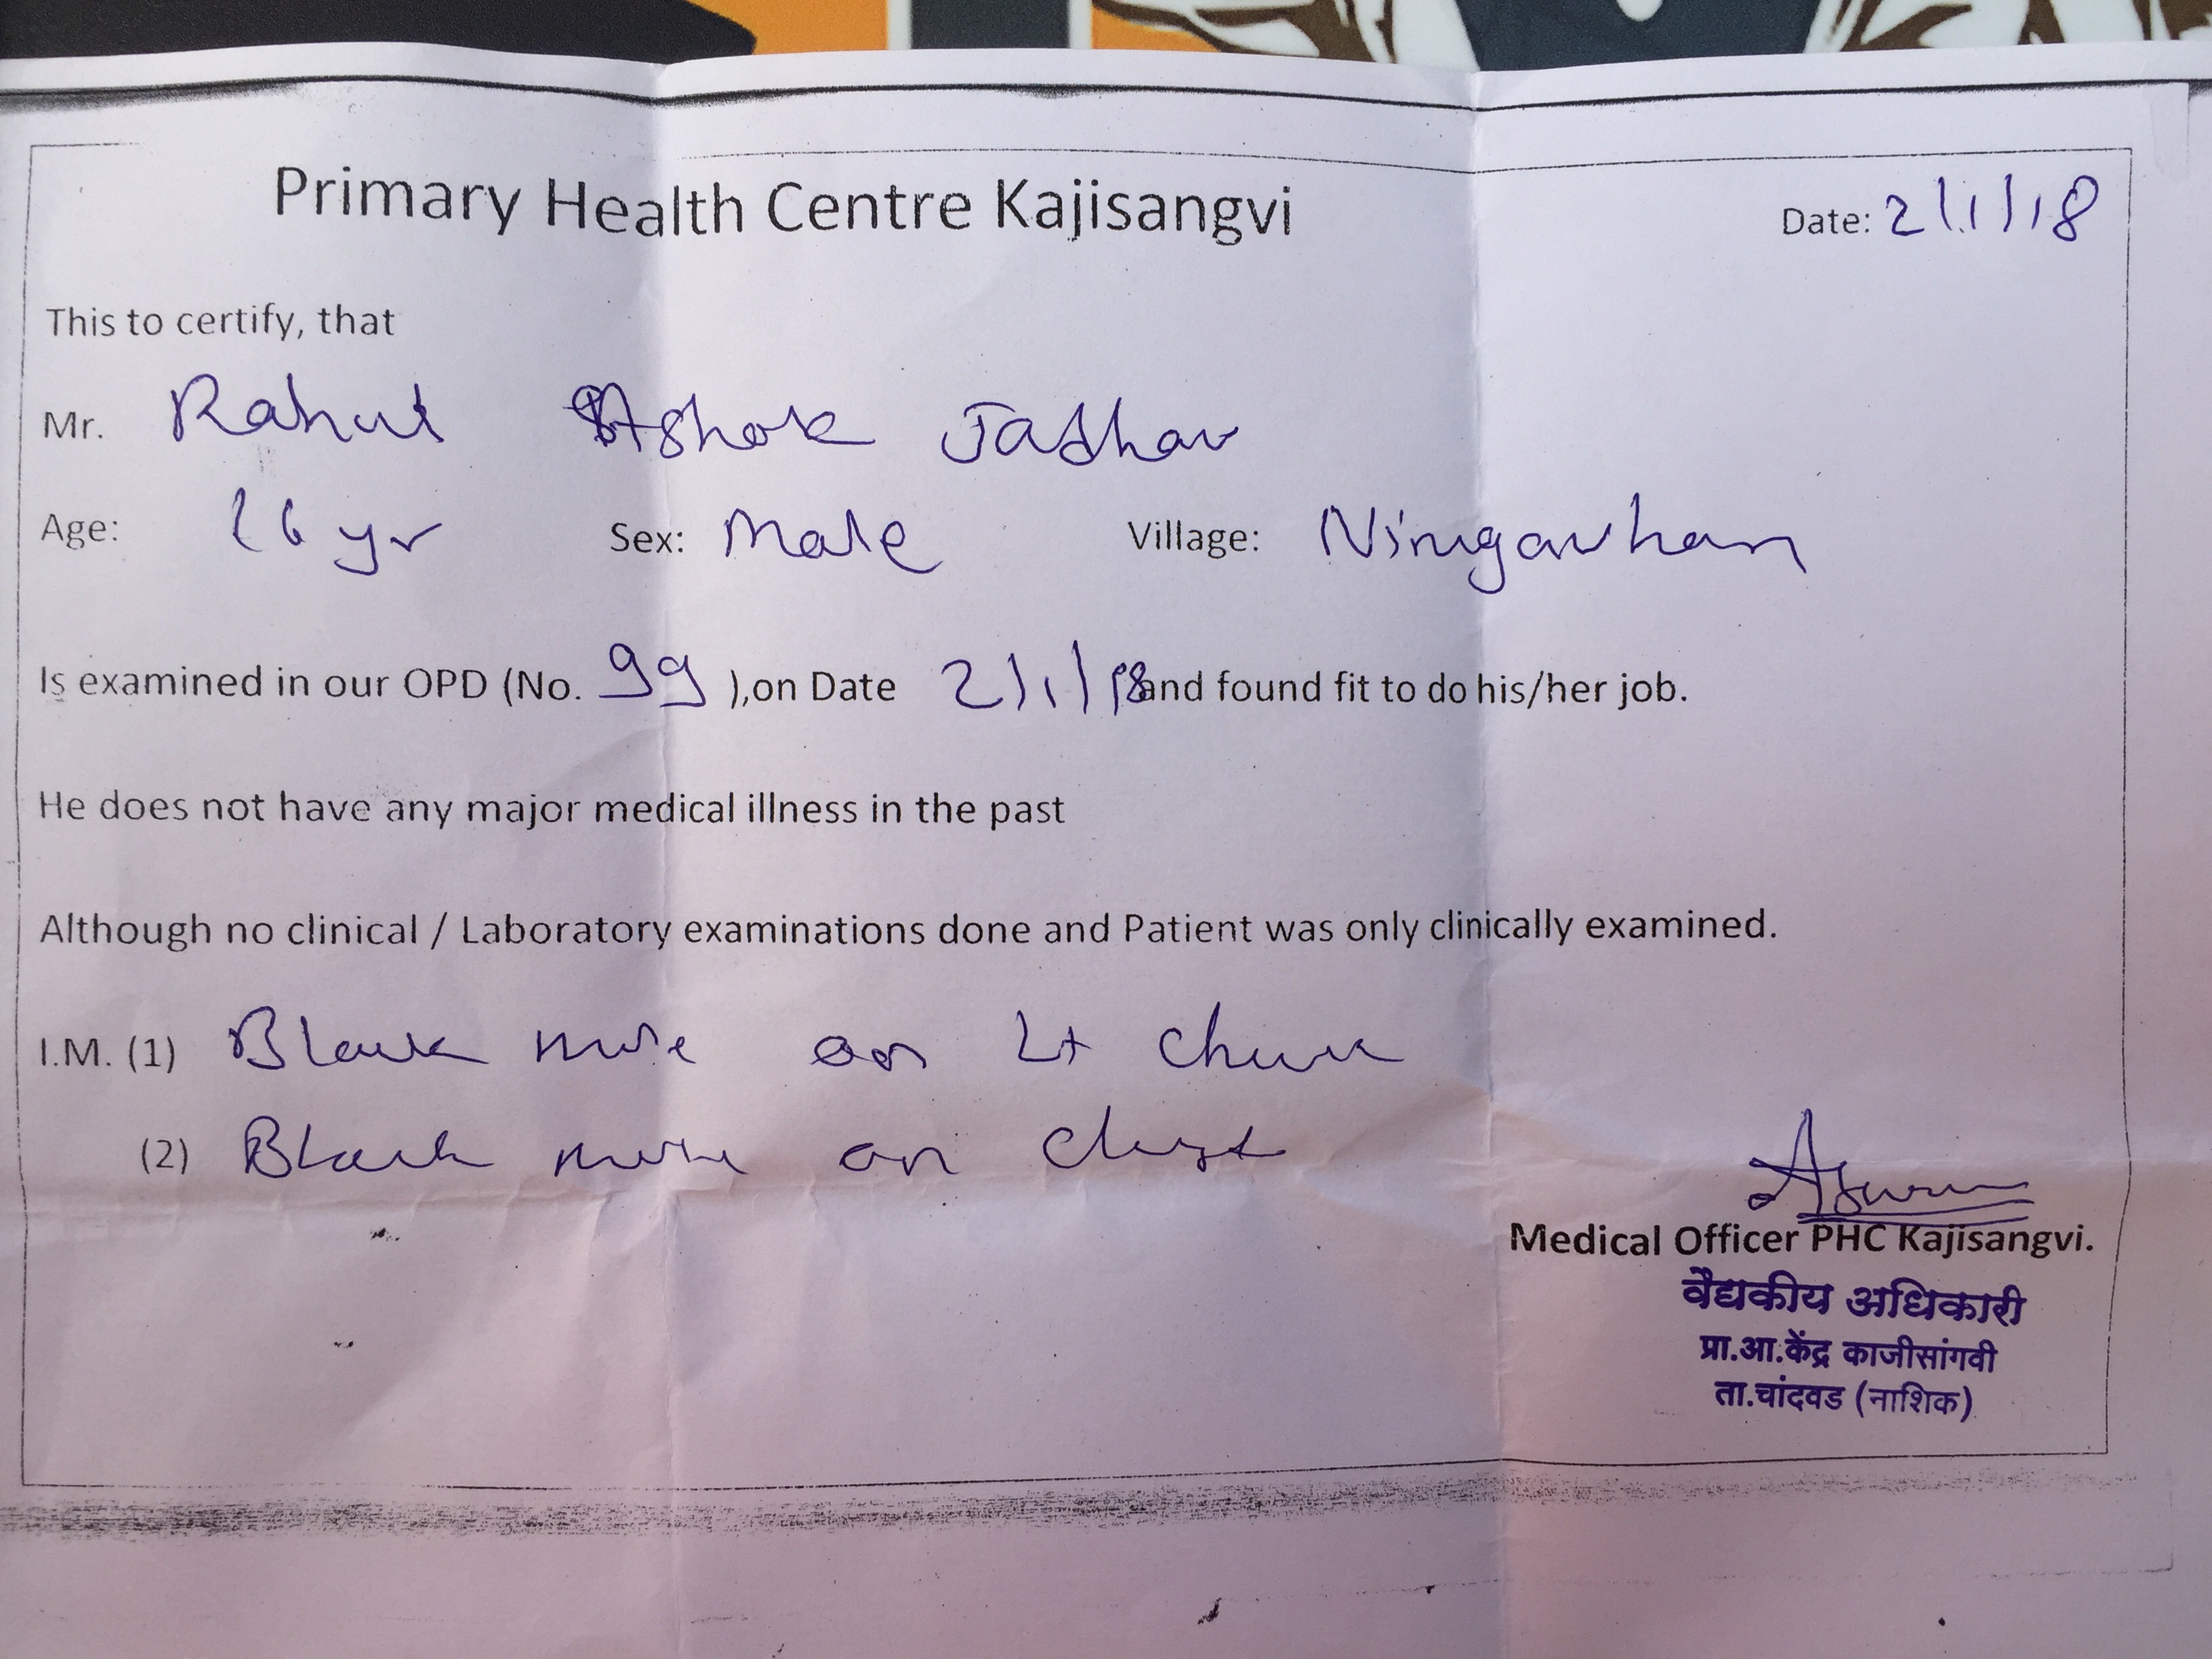 Primary Health Centre Kajisangvi
Date: 2/1/18
This to certify, that
Mr. Rahul Ashok Jadhav
Age: 26 yr Sex: Male Village: Nimgavhan
Is examined in our OPD (No. 99 ),on Date 2/1/18 and found fit to do his/her job.
He does not have any major medical illness in the past
Although no clinical / Laboratory examinations done and Patient was only clinically examined.
I.M. (1) Black mole on Lt
(2) Black mole on chest
Medical Officer PHC Kajisangvi.
वैद्यकीय अधिकारी
प्रा.आ.केंद्र काजीसांगवी
ता.चांदवड (नाशिक)